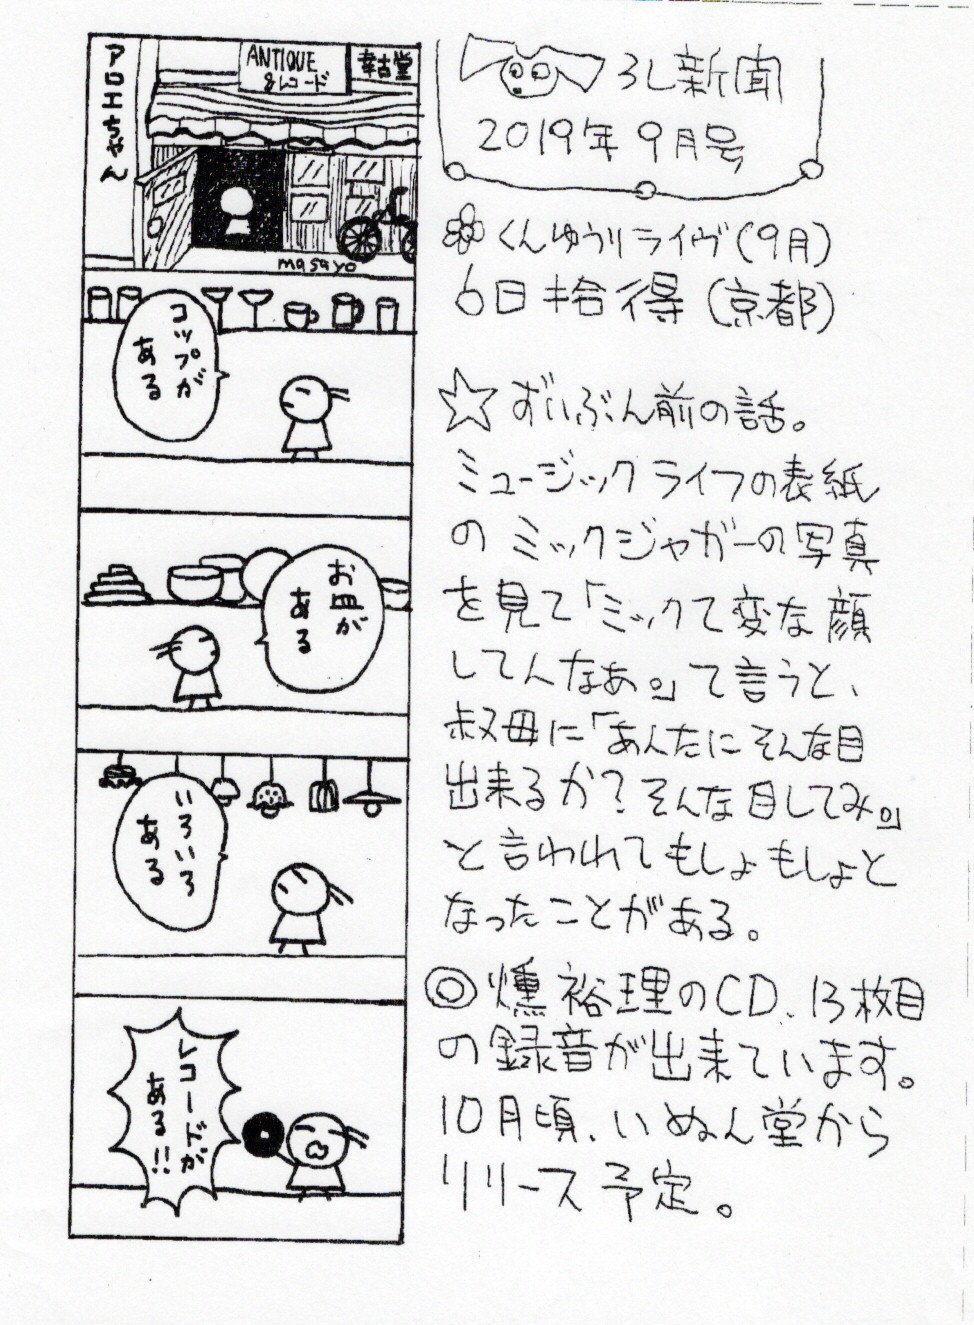 アロエちゃん
ANTIQUE
&レコード
幸古堂
masayo
コップが
ある
お皿が
ある
いろいろ
ある
レコードが
ある!!
ろし新聞
2019年9月号
くんゆうりライヴ(9月)
6日拾得(京都)
☆ずいぶん前の話。
ミュージックライフの表紙
のミックジャガーの写真
を見て「ミックて変な顔
してんなぁ。」て言うと、
叔母に「あんたにそんな目
出来るか?そんな目してみ。」
と言われてもしょもしょと
なったことがある。
◎燻裕理のCD、13枚目
の録音が出来ています。
10月頃、いぬん堂から
リリース予定。